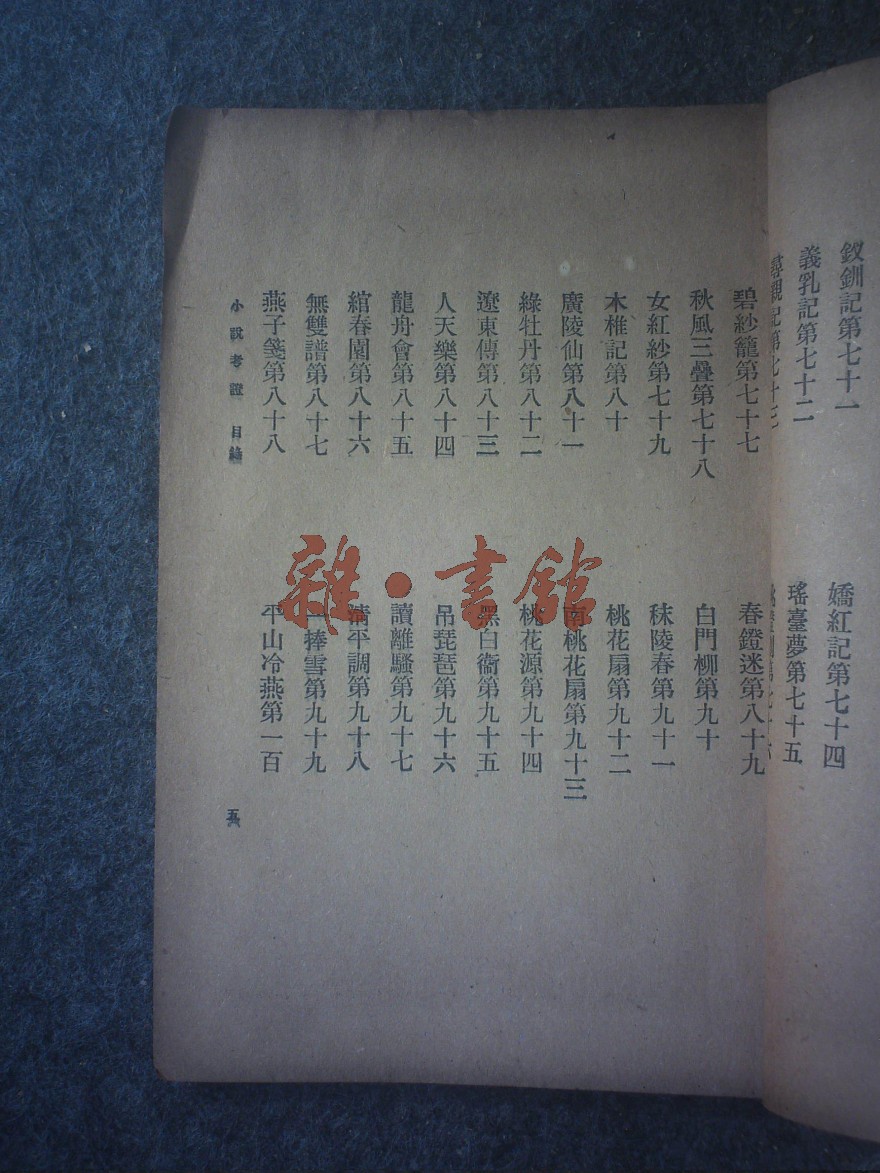 釵釧記第七十一
義乳記第七十二
尋親記第七十三
嬌紅記第七十四
瑤臺夢第七十五
碧紗籠第七十七
秋風三疊第七十八
女紅紗第七十九
木椎記第八十
廣陵仙第八十一
綠牡丹第八十二
遼東傳第八十三
人天樂第八十四
龍舟會第八十五
綰春園第八十六
無雙譜第八十七
燕子箋第八十八
春鐙迷第八十九
白門柳第九十
秣陵春第九十一
桃花扇第九十二
南桃花扇第九十三
桃花源第九十四
黑白衞第九十五
吊琵琶第九十六
讀離騷第九十七
清平調第九十八
一捧雪第九十九
平山冷燕第一百
小說考證 目錄
五
雜·書館